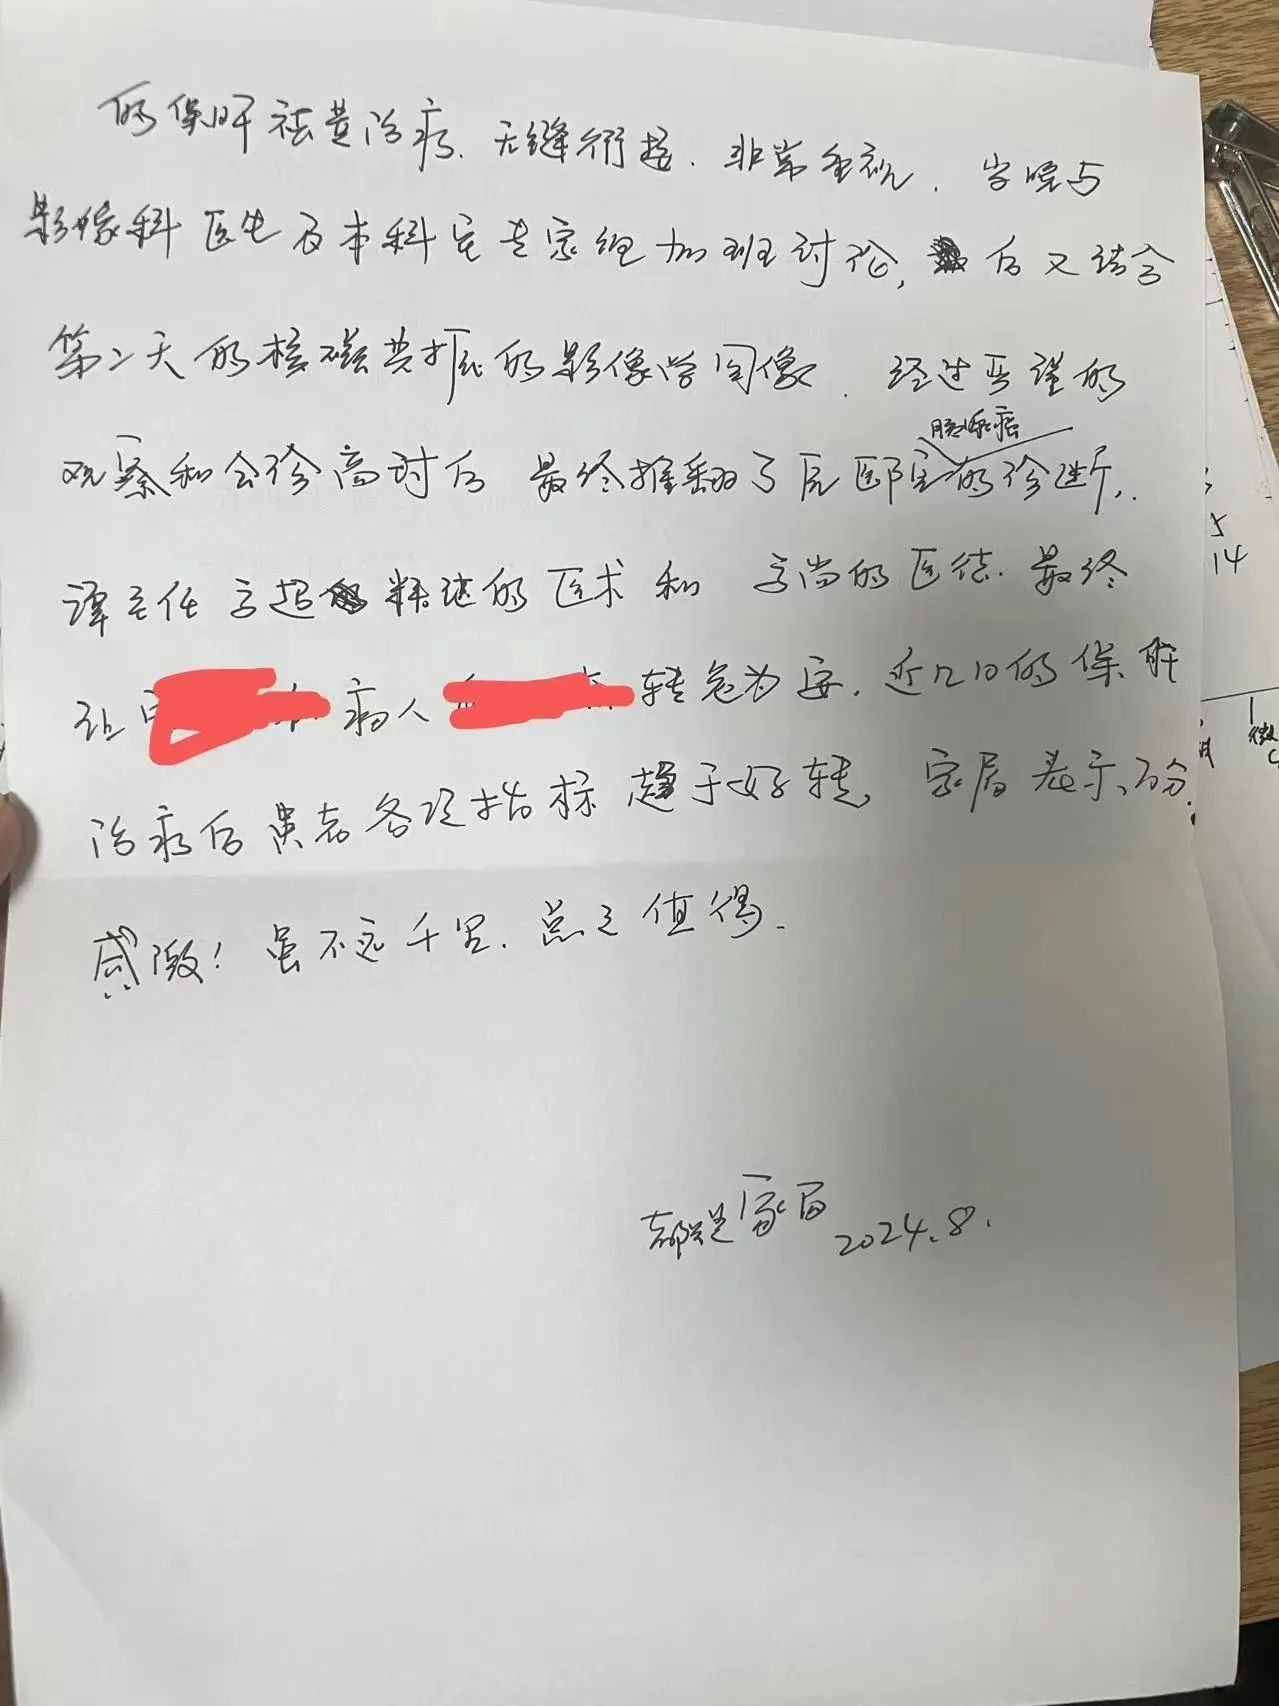 的保肝祛黄治疗.无缝衔接.非常重视.当晚与
影像科医生及本科室专家组加班讨论,后又结合
第二天的核磁共振的影像学图像.经过严谨的
胰腺癌
观察和会诊商讨后 最终推翻了原医院的诊断,
谭主任高超精湛的医术和 高尚的医德.最终
让 病人 转危为安.近几日的保肝
治疗后患者各项指标趋于好转,家属表示万分
感激!虽不远千里.总之值得.
家属 2024.8.
14